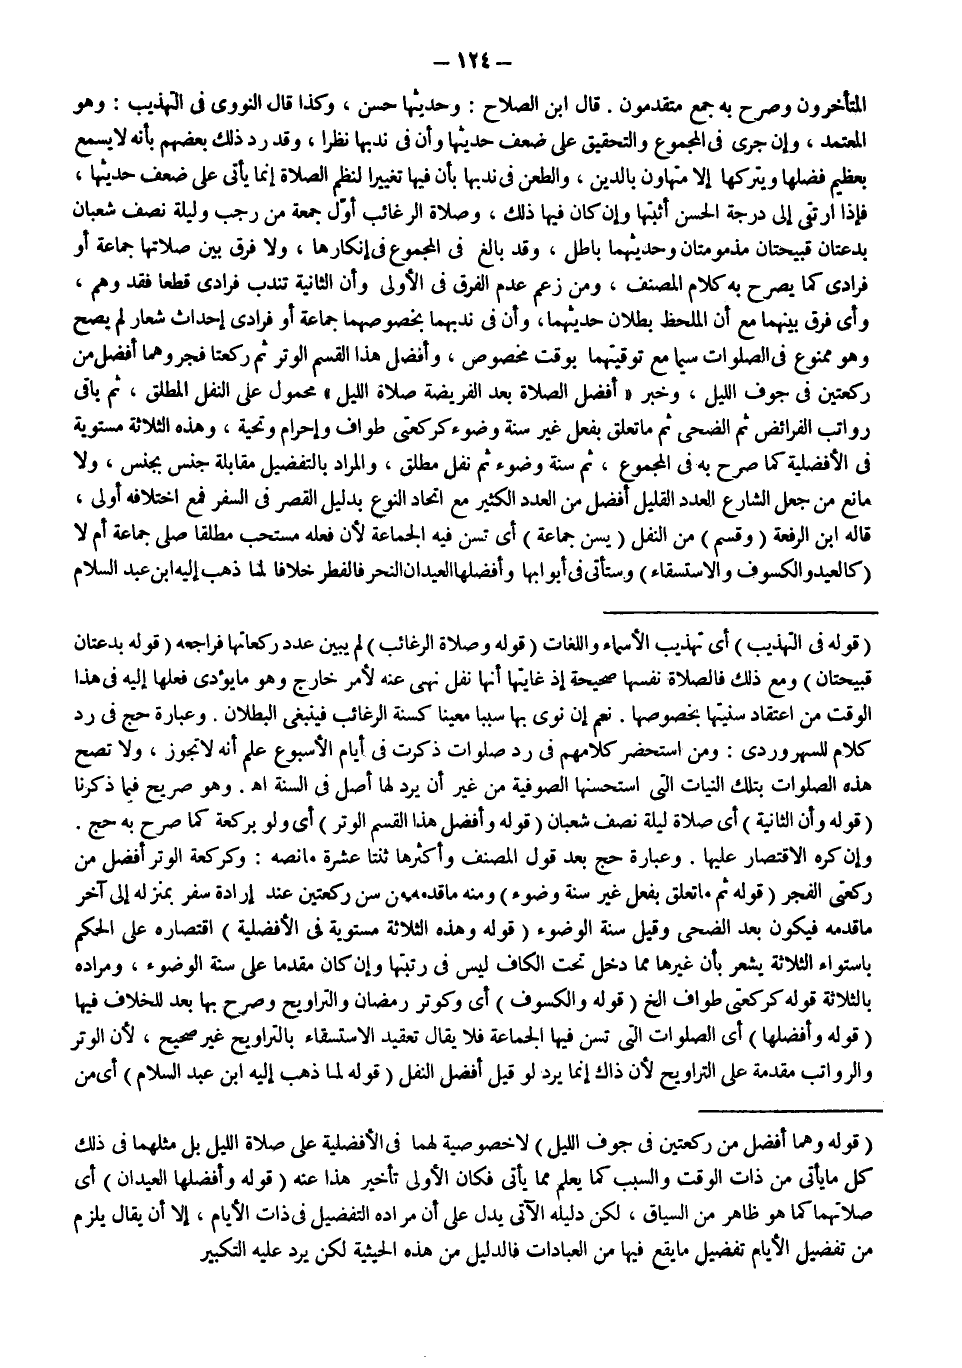 – ١٢٤ –
المتأخرون وصرح به جمع متقدمون . قال ابن الصلاح : وحديثها حسن ، وكذا قال النووى فى التهذيب : وهو
المعتمد ، وإن جرى فى المجموع والتحقيق على ضعف حديثها وأن فى ندبها نظرا ، وقد رد ذلك بعضهم بأنه لايسمع
بعظيم فضلها ويتركها إلا متهاون بالدين ، والطعن فى ندبها بأن فيها تغييرا لنظم الصلاة إنما يأتى على ضعف حديثها ،
فإذا ارتقى إلى درجة الحسن أثبتها وإن كان فيها ذلك ، وصلاة الرغائب أوّل جمعة من رجب وليلة نصف شعبان
بدعتان قبيحتان مذمومتان وحديثهما باطل ، وقد بالغ فى المجموع فى إنكارها ، ولا فرق بين صلاتها جماعة أو
فرادى كما يصرح به كلام المصنف ، ومن زعم عدم الفرق فى الأولى وأن الثانية تندب فرادى قطعا فقد وهم ،
وأى فرق بينهما مع أن الملحظ بطلان حديثهما، وأن فى ندبهما بخصوصهما جماعة أو فرادى إحداث شعار لم يصح
وهو ممنوع فى الصلوات سيما مع توقيتهما بوقت مخصوص ، وأفضل هذا القسم الوتر ثم ركعتا فجر وهما أفضل من
ركعتين فى جوف الليل ، وخبر « أفضل الصلاة بعد الفريضة صلاة الليل » محمول على النفل المطلق ، ثم باقى
رواتب الفرائض ثم الضحى ثم ماتعلق بفعل غير سنة وضوء كركعتى طواف وإحرام وتحية ، وهذه الثلاثة مستوية
فى الأفضلية كما صرح به فى المجموع ، ثم سنة وضوء ثم نفل مطلق ، والمراد بالتفضيل مقابلة جنس بجنس ، ولا
مانع من جعل الشارع العدد القليل أفضل من العدد الكثير مع اتحاد النوع بدليل القصر فى السفر فمع اختلافه أولى ،
قاله ابن الرفعة ( وقسم ) من النفل ( يسن جماعة ) أى تسن فيه الجماعة لأن فعله مستحب مطلقا صلى جماعة أم لا
( كالعيد والكسوف والاستسقاء ) وستأتى فى أبوابها وأفضلها العيدان النحر فالفطر خلافا لما ذهب إليه ابن عبد السلام
( قوله فى التهذيب ) أى تهذيب الأسماء واللغات ( قوله وصلاة الرغائب ) لم يبين عدد ركعاتها فراجعه ( قوله بدعتان
قبيحتان ) ومع ذلك فالصلاة نفسها صحيحة إذ غايتها أنها نفل نهى عنه لأمر خارج وهو مايؤدى فعلها إليه فى هذا
الوقت من اعتقاد سنيتها بخصوصها . نعم إن نوى بها سببا معينا كسنة الرغائب فينبغى البطلان . وعبارة حج فى رد
كلام للسهروردى : ومن استحضر كلامهم فى رد صلوات ذكرت فى أيام الأسبوع علم أنه لاتجوز ، ولا تصح
هذه الصلوات بتلك النيات التى استحسنها الصوفية من غير أن يرد لها أصل فى السنة اه . وهو صريح فيما ذكرنا
( قوله وأن الثانية ) أى صلاة ليلة نصف شعبان ( قوله وأفضل هذا القسم الوتر ) أى ولو بركعة كما صرح به حج .
وإن كره الاقتصار عليها . وعبارة حج بعد قول المصنف وأكثرها ثنتا عشرة مانصه : وكركعة الوتر أفضل من
ركعتى الفجر ( قوله ثم ماتعلق بفعل غير سنة وضوء ) ومنه ماقدمه من سن ركعتين عند إرادة سفر بمنزله إلى آخر
ماقدمه فيكون بعد الضحى وقبل سنة الوضوء ( قوله وهذه الثلاثة مستوية فى الأفضلية ) اقتصاره على الحكم
باستواء الثلاثة يشعر بأن غيرها مما دخل تحت الكاف ليس فى رتبتها وإن كان مقدما على سنة الوضوء ، ومراده
بالثلاثة قوله كركعتى طواف الخ ( قوله والكسوف ) أى وكوتر رمضان والتراويح وصرح بها بعد للخلاف فيها
( قوله وأفضلها ) أى الصلوات التى تسن فيها الجماعة فلا يقال تعقيد الاستسقاء بالتراويح غير صحيح ، لأن الوتر
والرواتب مقدمة على التراويح لأن ذاك إنما يرد لو قيل أفضل النفل ( قوله لما ذهب إليه ابن عبد السلام ) أى من
( قوله وهما أفضل من ركعتين فى جوف الليل ) لاخصوصية لهما فى الأفضلية على صلاة الليل بل مثلهما فى ذلك
كل مايأتى من ذات الوقت والسبب كما يعلم مما يأتى فكان الأولى تأخير هذا عنه ( قوله وأفضلها العيدان ) أى
صلاتهما كما هو ظاهر من السياق ، لكن دليله الآتى يدل على أن مراده التفضيل فى ذات الأيام ، إلا أن يقال يلزم
من تفضيل الأيام تفضيل مايقع فيها من العبادات فالدليل من هذه الحيثية لكن يرد عليه التكبير